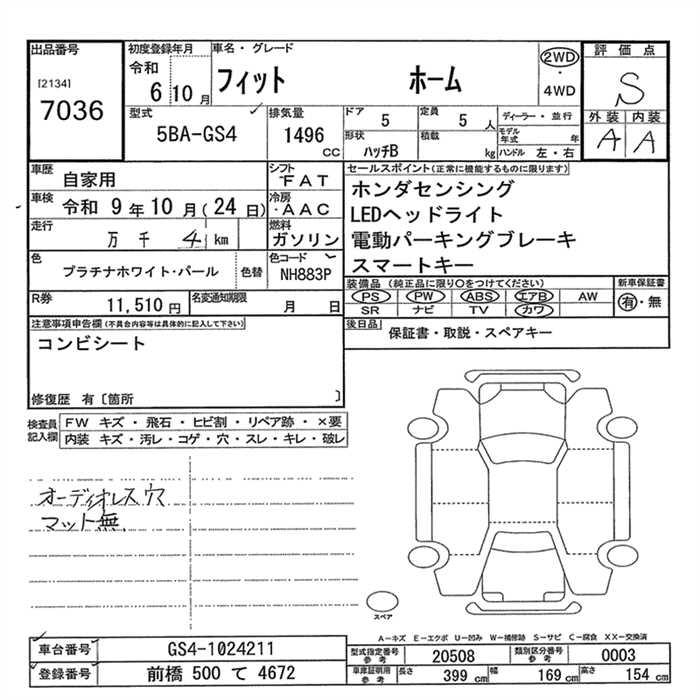 出品番号
[2134]
7036
初度登録年月
令和
6 10 月
車名・グレード
フィット ホーム
2WD
・
4WD
評価点
S
外装 内装
A A
型式
5BA-GS4
排気量
1496
CC
ドア
5
定員
5 人
形状
ハッチB
積載
kg
ディーラー・並行
モデル年式 年
ハンドル 左・右
車歴
自家用
シフト
FAT
車検
令和 9 年 10 月 (24 日)
冷房
AAC
走行
万 千 4 km
燃料
ガソリン
色
プラチナホワイト・パール
色替
色コード
NH883P
R券
11,510 円
名変通知期限
月 日
セールスポイント(正常に機能するものに限ります)
ホンダセンシング
LEDヘッドライト
電動パーキングブレーキ
スマートキー
装備品 (純正品に限り○をつけてください)
PS PW ABS エアB AW
SR ナビ TV カワ
新車保証書
有・無
後日品
保証書・取説・スペアキー
注意事項申告欄(不具合内容等は具体的に記入して下さい)
コンビシート
修復歴 有〔箇所 〕
検査員
記入欄
FW キズ ・ 飛石 ・ ヒビ割 ・ リペア跡 ・ ×要
内装 キズ・汚レ・コゲ・穴・スレ・キレ・破レ
オーディオレス穴
マット無
スペア
A-キズ E-エクボ U-凹み W-補修跡 S-サビ C-腐食 XX-交換済
車台番号
GS4-1024211
登録番号
前橋 500 て 4672
型式指定番号
参考
20508
類別区分番号
参考
0003
車庫証明用
参考
長さ
399 cm
幅
169 cm
高さ
154 cm